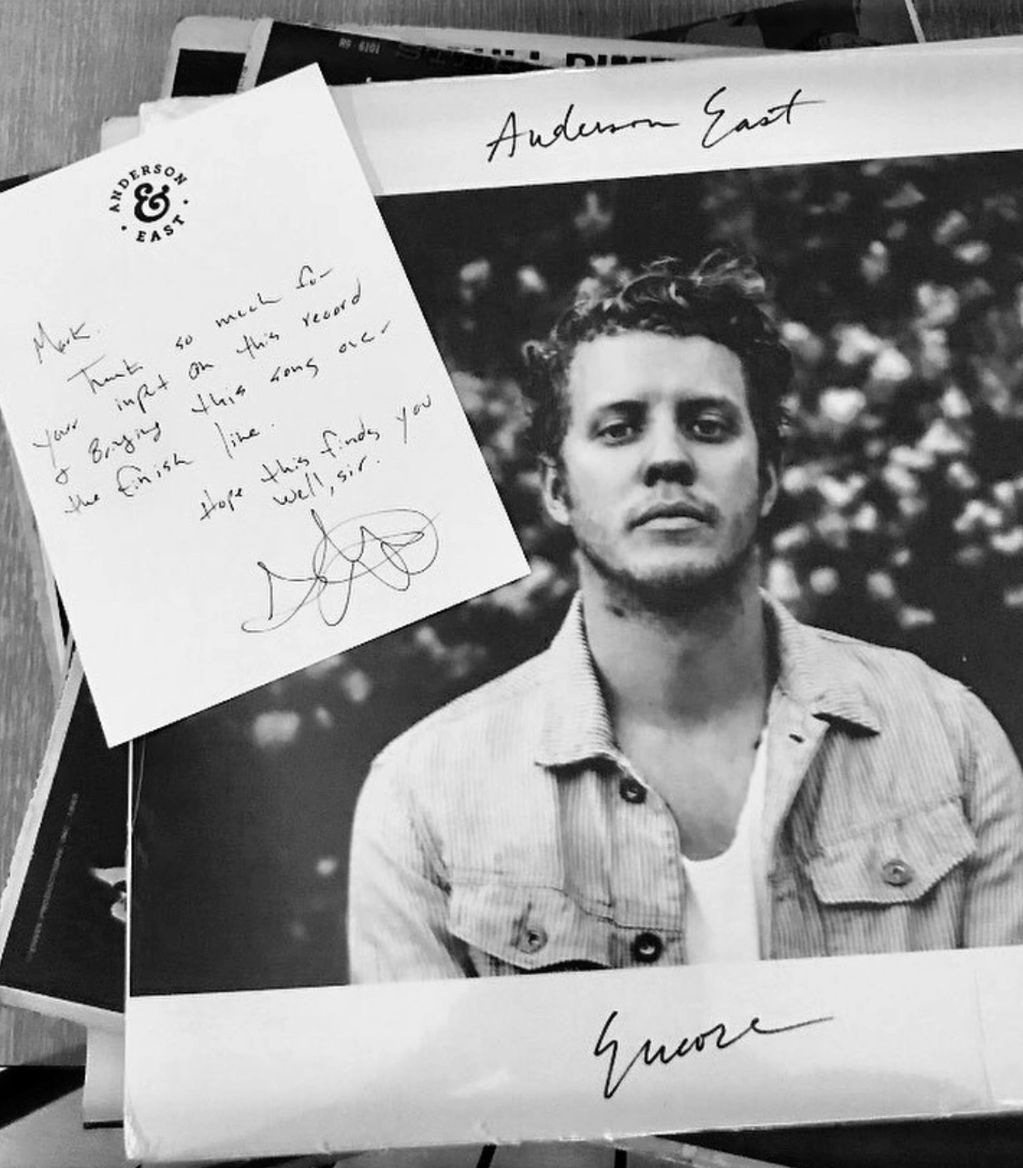 RS-6101
Anderson East
ANDERSON
&
EAST
Mark.
Thank so much for
your input on this record
& Bringing this song over
the finish line.
Hope this finds you
well, sir.
Encore